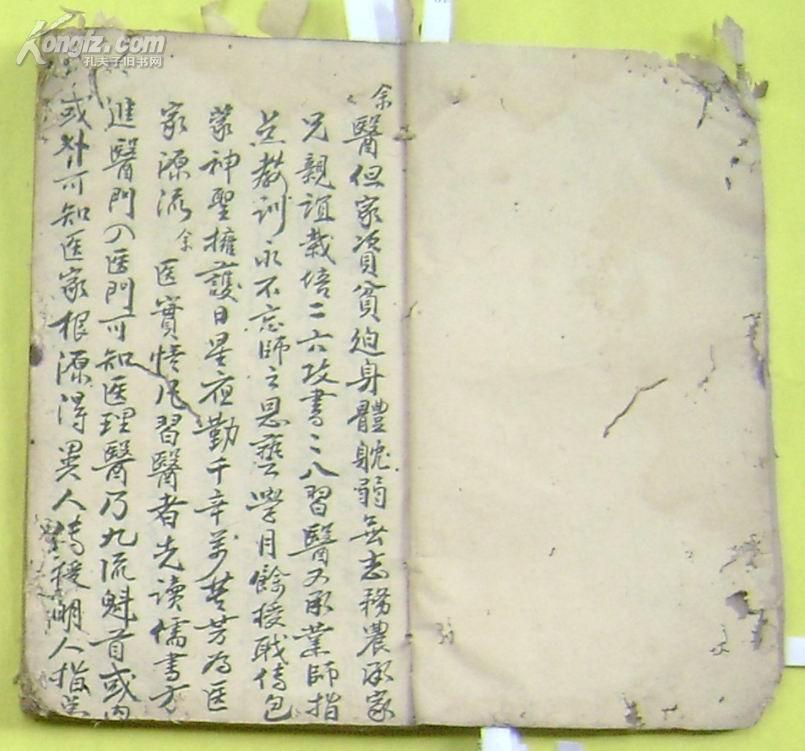 余醫但家資貧迫身體躭弱無志務農承家
兄親誼栽培二六攻書二八習醫又承業師指
点教訓永不忘師之恩 學月餘授職傳包
蒙神聖擁護日星夜勤千辛萬苦芳為医
家源流余医實悟凡習醫者先讀儒書方
進醫門入医門可知医理醫乃九流魁首或内
或外可知医家根源得異人傳授明人指点
Kongfz.com
孔夫子旧书网